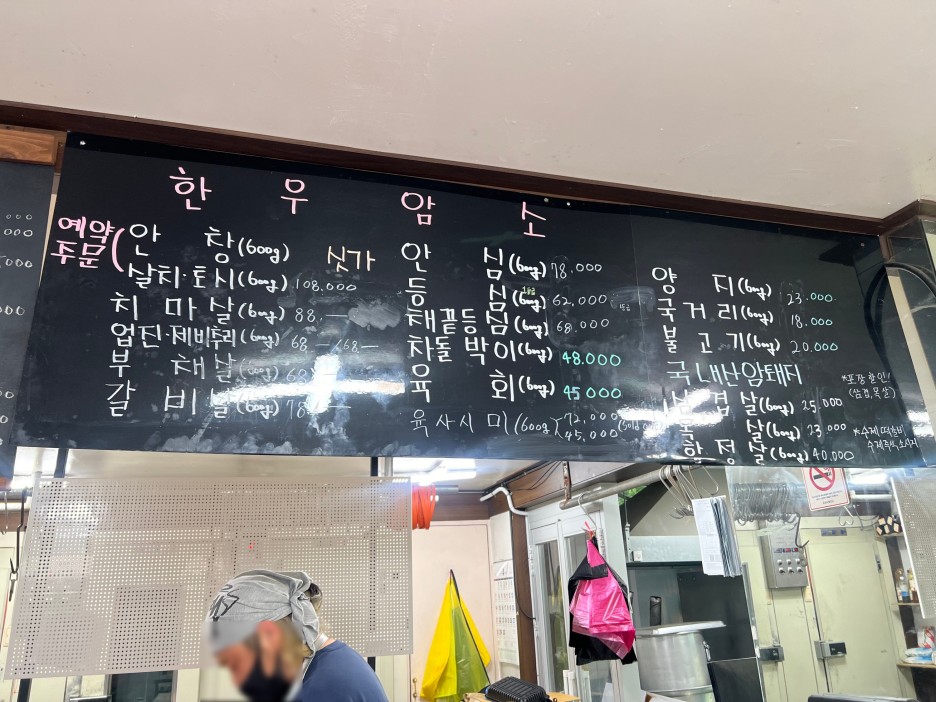 한 우 암 소
예약
주문
안 창(600g) 싯가
살치·토시(600g) 108.000
치 마 살(600g) 88.—
업진·제비추리(600g) 68—/68.—
부 채 살(600g) 68
갈 비 살(600g) 78
안 심(600g) 78.000
등 심(600g) 62,000
채끝등심(600g) 68.000
차돌박이(600g) 48.000
육 회(600g) 45.000
육사시미(600g) 72,000
45,000
양 지(600g) 23.000
국 거 리(600g) 18.000
불 고 기(600g) 20,000
국내산암퇘지
삼 겹 살(600g) 25.000
목 살(600g) 23,000
항 정 살(600g) 40,000
*포장 할인!
(삼겹,목살)
*수제,떡갈비,